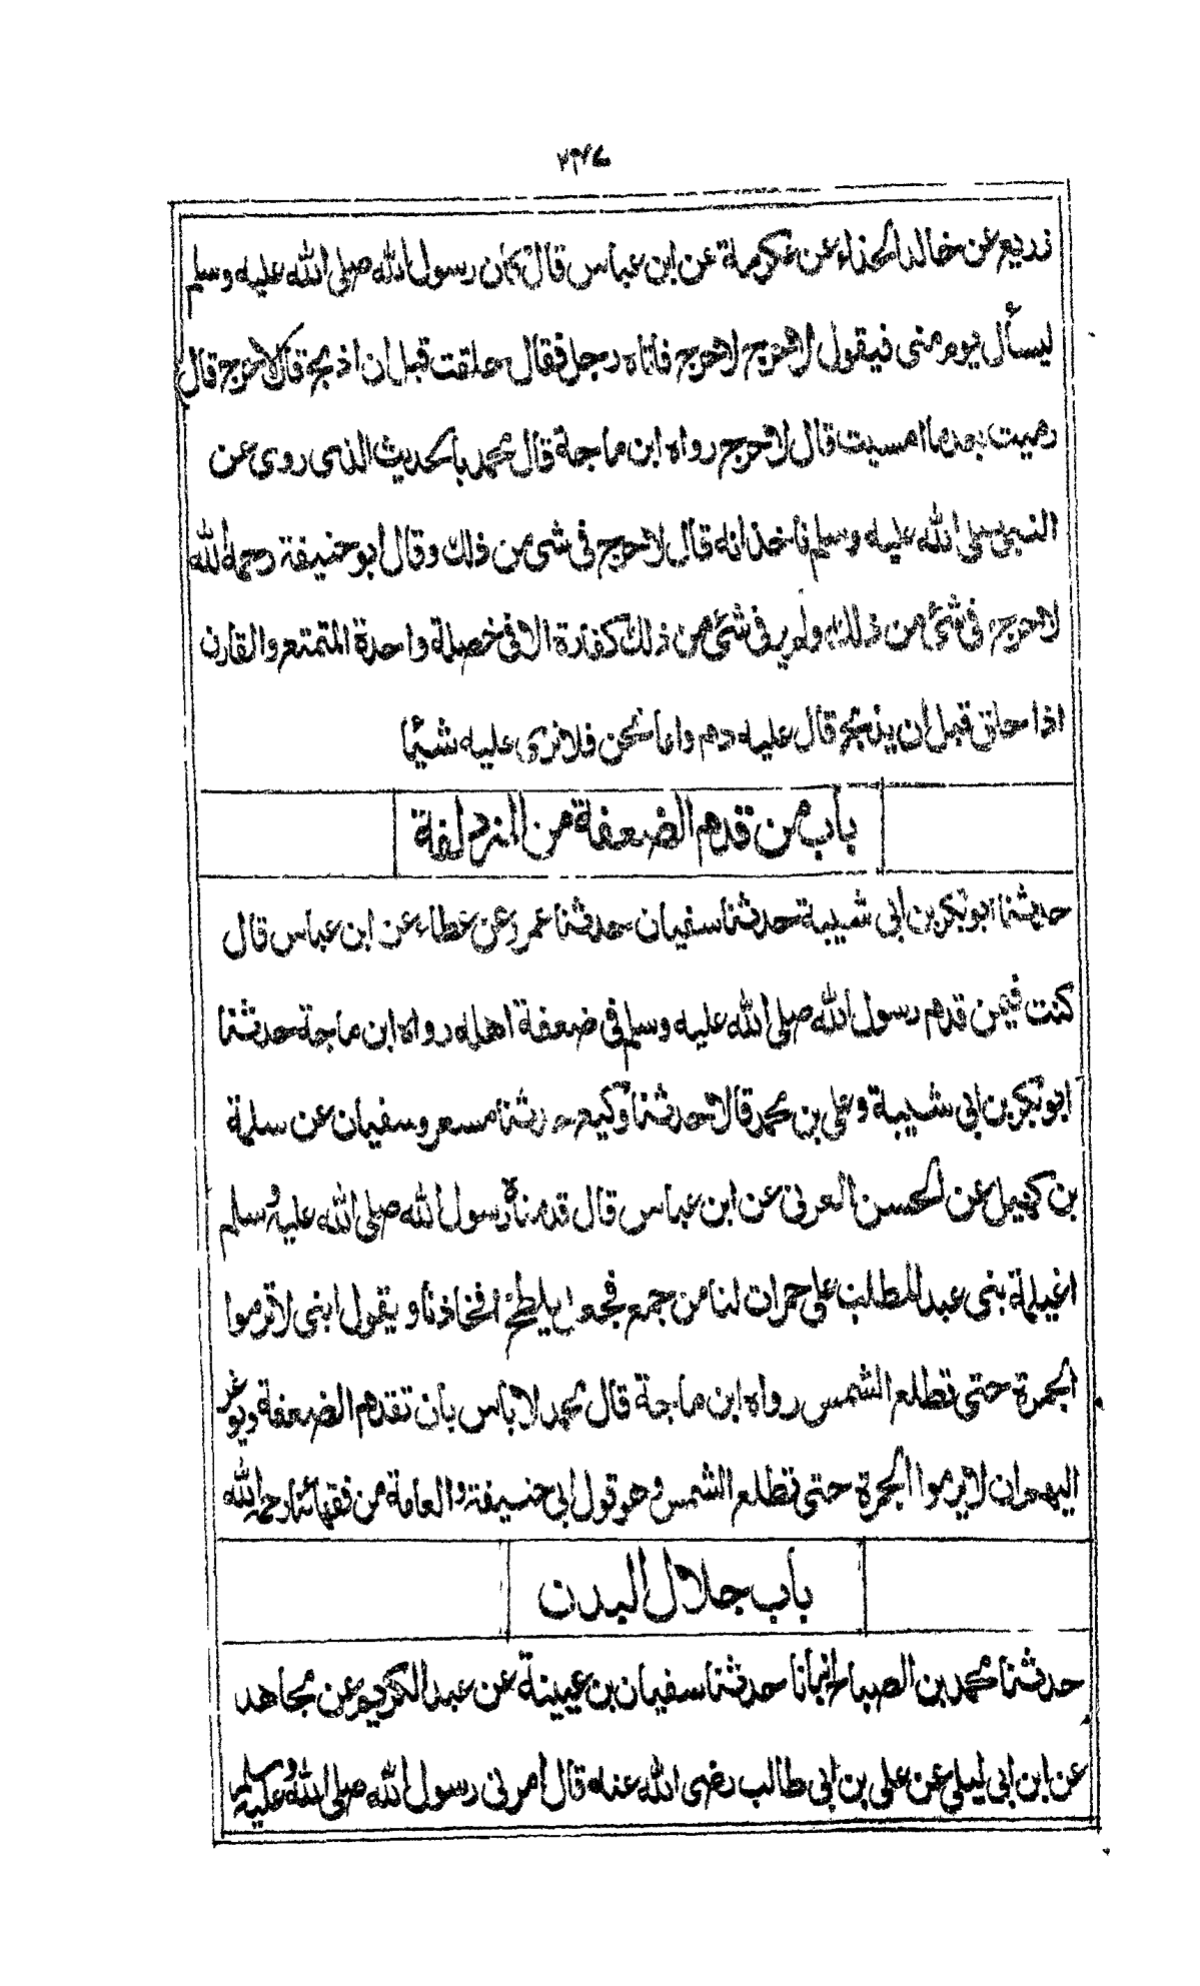 زريع عن خالد الحذاء عن عكرمة عن ابن عباس قال كان رسول الله صلى الله عليه وسلم
يسأل يوم منى فيقول لا حرج لا حرج فاتاه رجل فقال حلقت قبل ان اذبح قال لا حرج قال
رميت بعد ما امسيت قال لا حرج رواه ابن ماجة قال محمد بالحديث الذى روى عن
النبي صلى الله عليه وسلم ناخذ انه قال لا حرج فى شئ من ذلك وقال ابو حنيفة رحمه الله
لا حرج فى شئ من ذلك ولم ير فى شئ من ذلك كفارة الا فى خصلة واحدة المتمتع والقارن
اذا حلق قبل ان يذبح قال عليه دم واما نحن فلا نرى عليه شيئا
باب من قدم الضعفة من المزدلفة
حدثنا ابو بكر بن ابى شيبة حدثنا سفيان حدثنا عمرو عن عطاء عن ابن عباس قال
كنت فيمن قدم رسول الله صلى الله عليه وسلم فى ضعفة اهله رواه ابن ماجة حدثنا
ابو بكر بن ابى شيبة وعلى بن محمد قالا حدثنا وكيع حدثنا مسعر وسفيان عن سلمة
بن كهيل عن الحسن العرنى عن ابن عباس قال قدمنا رسول الله صلى الله عليه وسلم
اغيلمة بنى عبد المطلب على حمرات لنا من جمع فجعل يلطح افخاذنا ويقول ابنى لا ترموا
الجمرة حتى تطلع الشمس رواه ابن ماجة قال محمد لا باس بان تقدم الضعفة ويوغر
اليهم ان لا يرموا الجمرة حتى تطلع الشمس وهو قول ابى حنيفة والعامة من فقهائنا رحمه الله
باب جلال البدن
حدثنا محمد بن الصباح انبانا حدثنا سفيان بن عيينة عن عبد الكريم عن مجاهد
عن ابن ابى ليلى عن على بن ابى طالب رضى الله عنه قال امرنى رسول الله صلى الله عليه وسلم